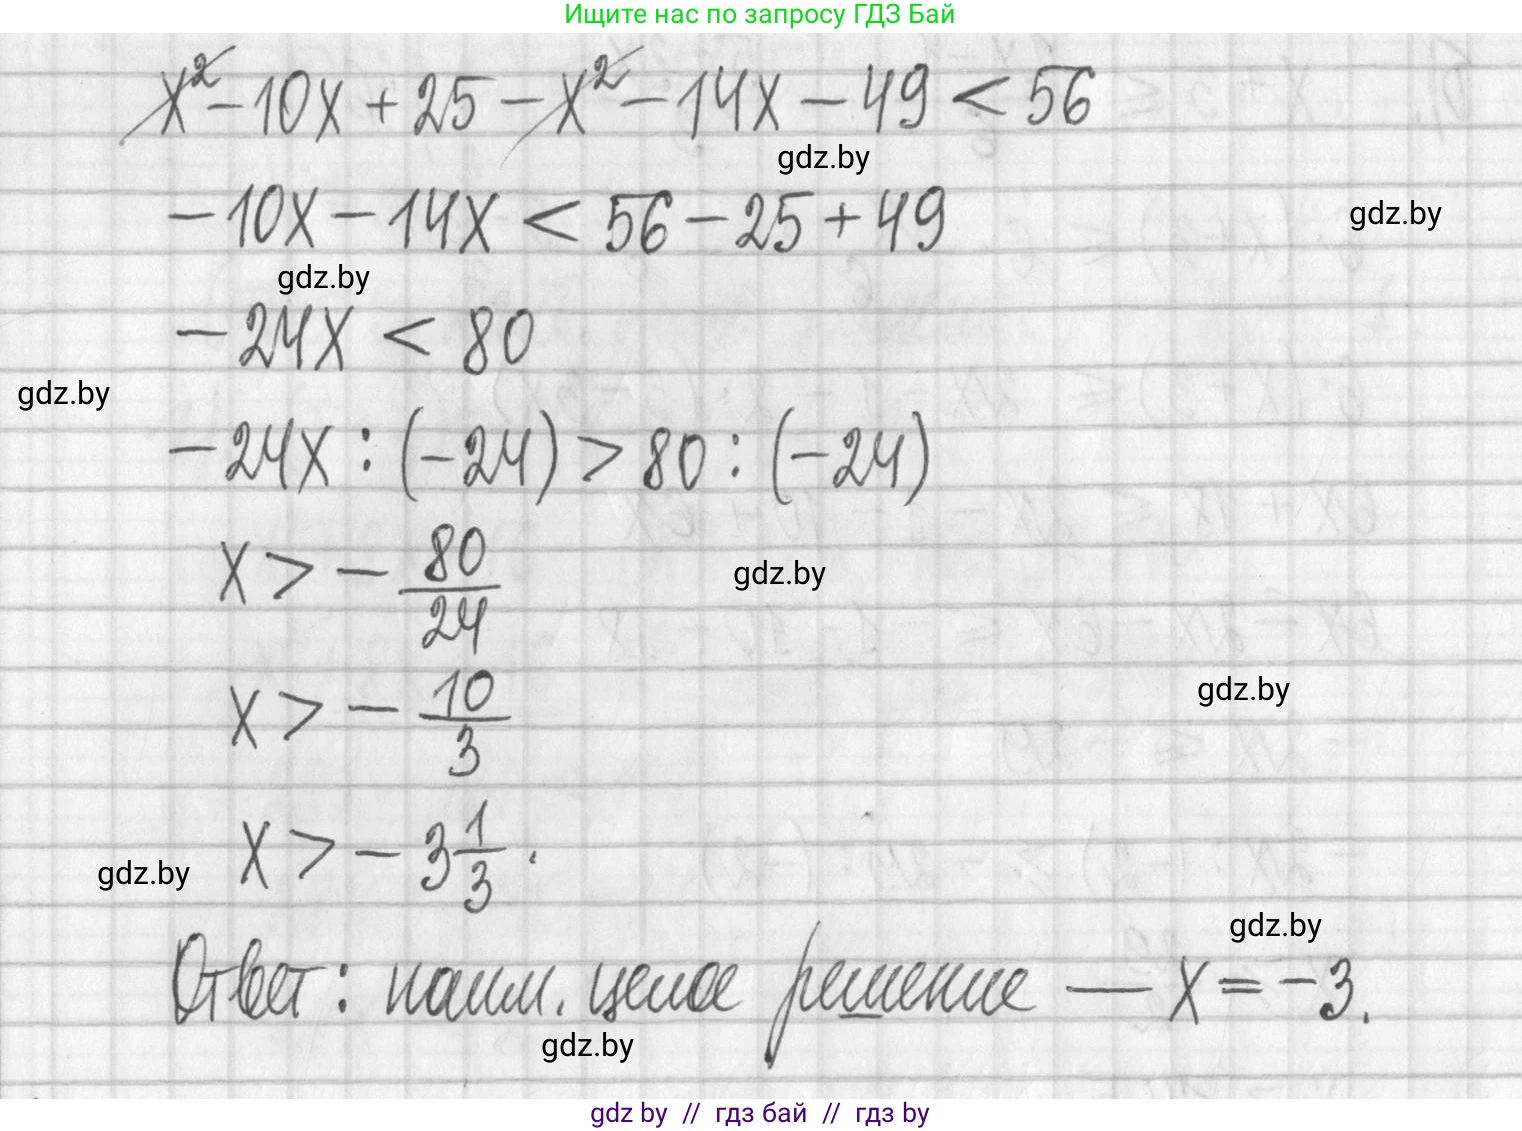 Ищите нас по запросу ГДЗ Бай
x² - 10x + 25 - x² - 14x - 49 < 56
gdz.by
- 10x - 14x < 56 - 25 + 49
gdz.by
gdz.by
- 24x < 80
gdz.by
- 24x : (-24) > 80 : (-24)
x > - 80/24
gdz.by
x > - 10/3
gdz.by
x > - 3 1/3.
gdz.by
gdz.by
Ответ: наим. целое решение — x = -3.
gdz.by
gdz by // гдз бай // гдз by